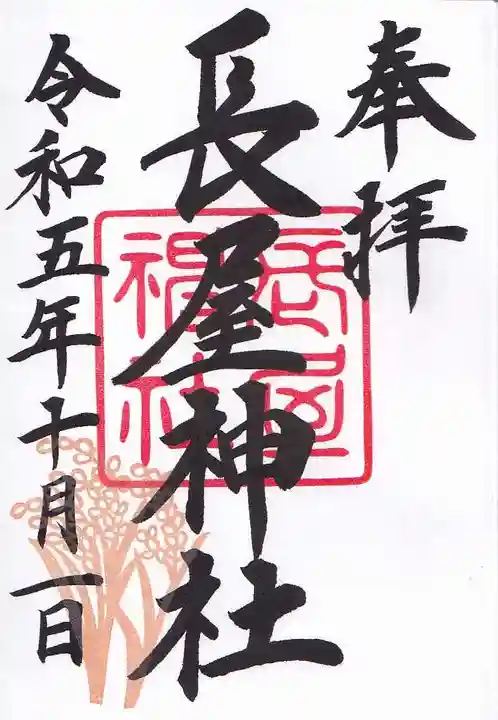 奉拝
長屋神社
長屋神社
令和五年十月一日